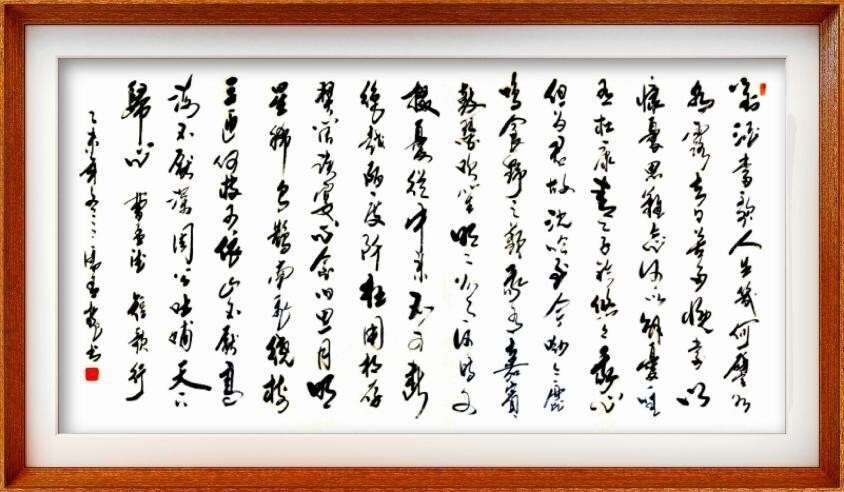 對酒當歌人生幾何譬如
朝露去日苦多慨當以
慷憂思難忘何以解憂唯
有杜康青々子衿悠々我心
但为君故沈吟至今呦々鹿
鳴食野之蘋我有嘉賓
鼓瑟吹笙明々如月何時可
掇憂從中來不可斷
絕越陌度阡枉用相存
契闊談宴心念旧恩月明
星稀烏鵲南飛繞樹
三匝何枝可依山不厭高
海不厭深周公吐哺天下
歸心 曹孟德 短歌行
乙未年冬 書